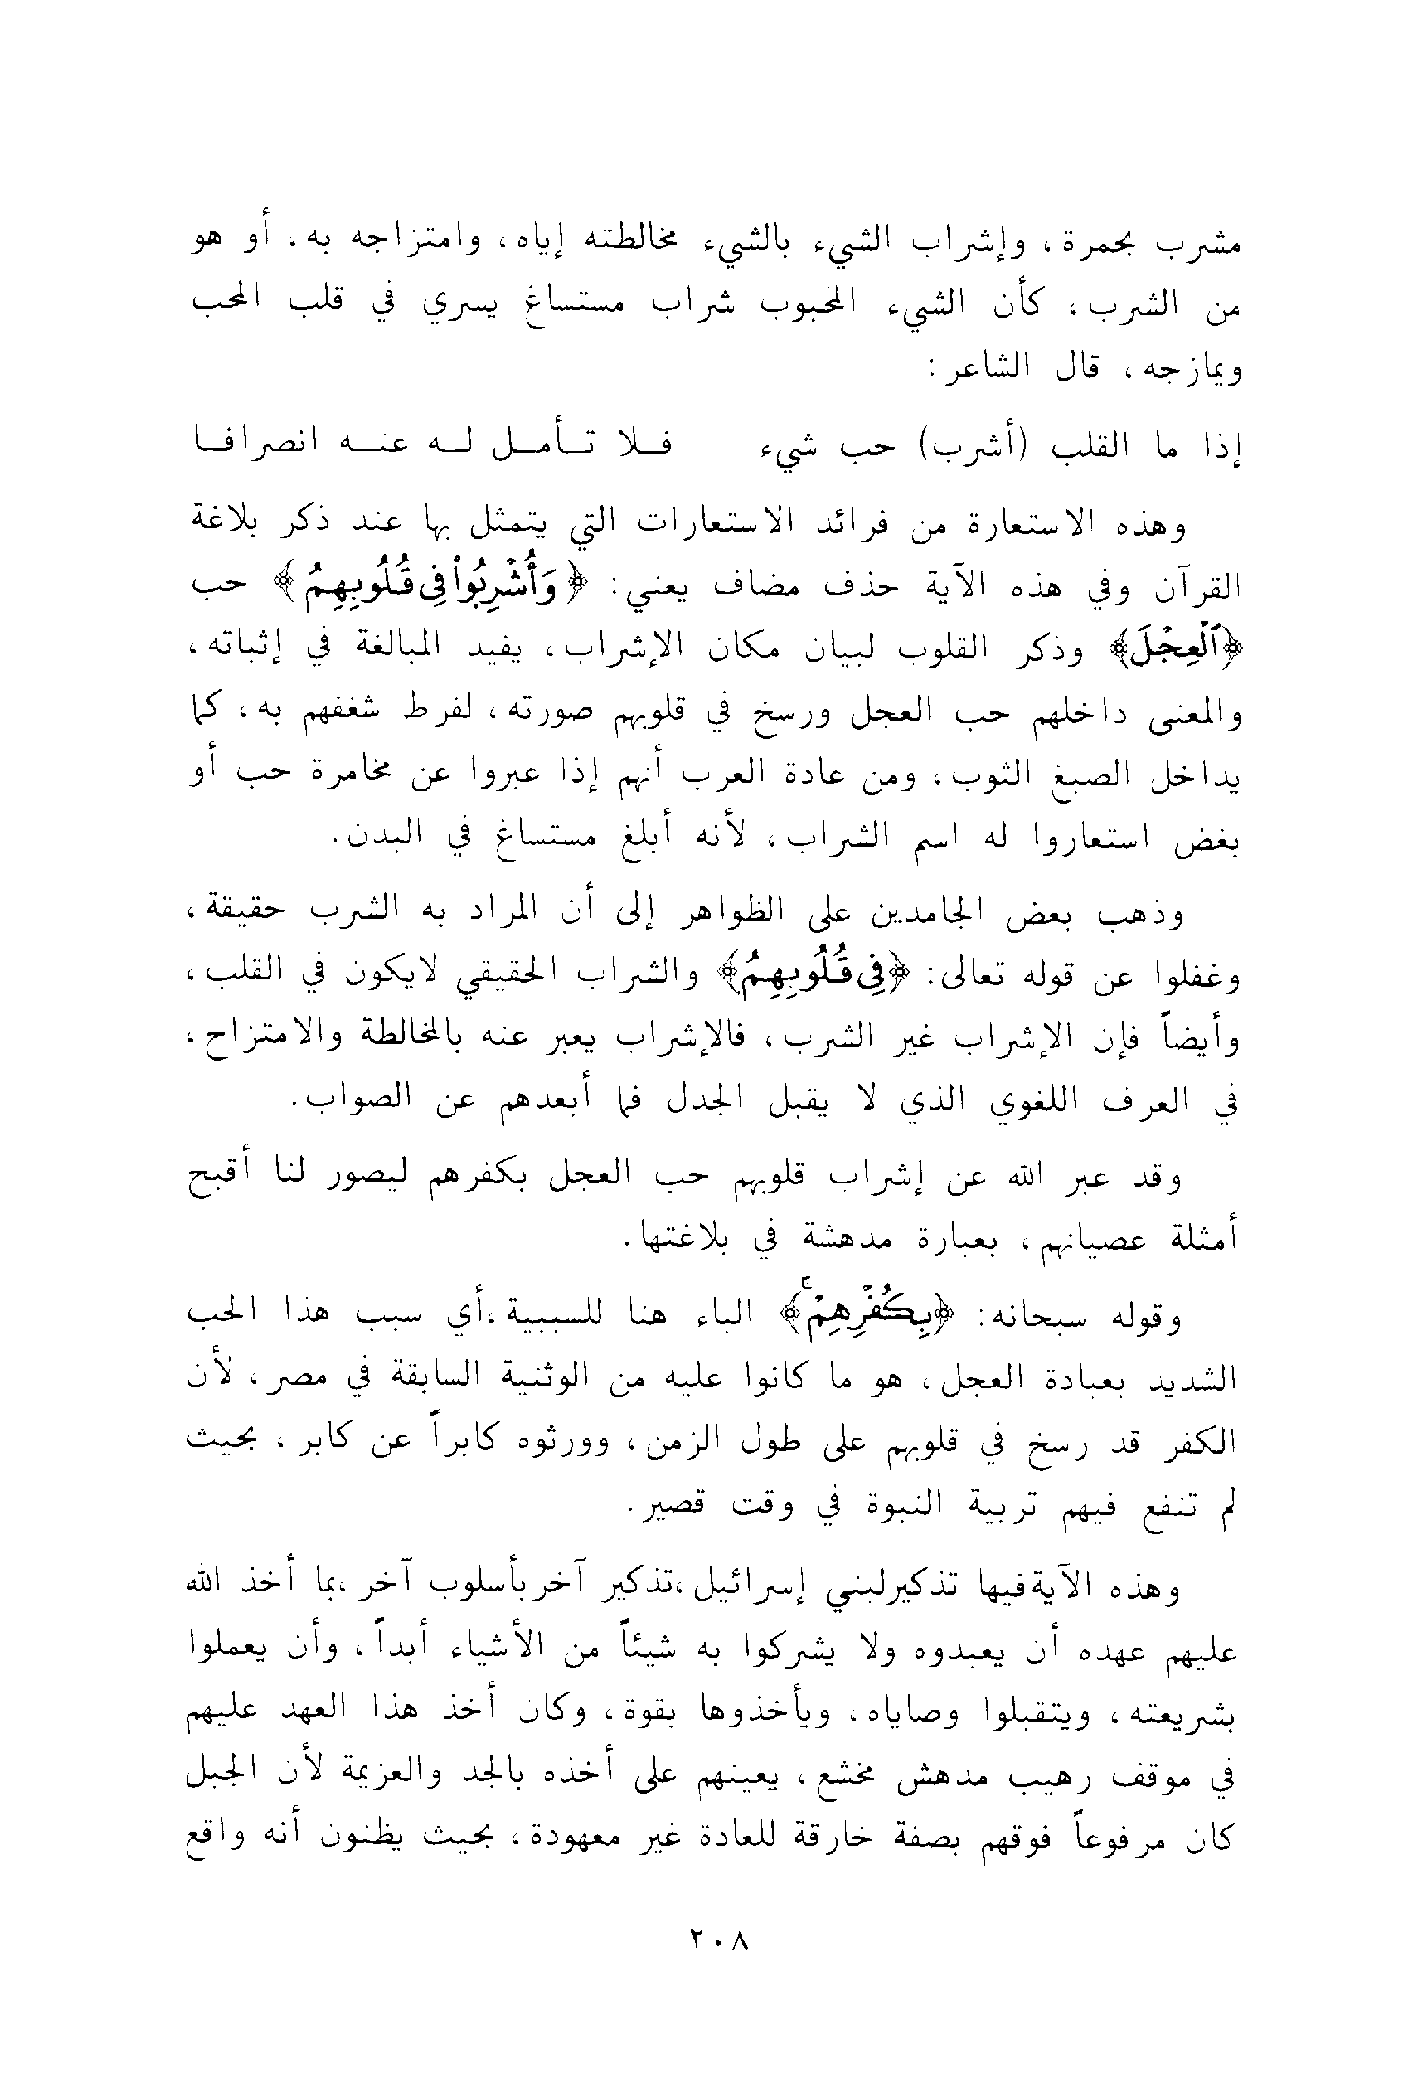 مشرب بحمرة، وإشراب الشيء بالشيء مخالطته إياه، وامتزاجه به، أو هو
من الشرب، كأن الشيء المحبوب شراب مستساغ يسري في قلب المحب
ويمازجه، قال الشاعر:
إذا ما القلب (أشرب) حب شيء فـلا تـأمـل لـه عنـه انصرافـا
وهذه الاستعارة من فرائد الاستعارات التي يتمثل بها عند ذكر بلاغة
القرآن وفي هذه الآية حذف مضاف يعني: ﴿وَأُشْرِبُوا۟ فِى قُلُوبِهِمُ﴾ حب
﴿ٱلْعِجْلَ﴾ وذكر القلوب لبيان مكان الإشراب، يفيد المبالغة في إثباته،
والمعنى داخلهم حب العجل ورسخ في قلوبهم صورته، لفرط شغفهم به، كما
يداخل الصبغ الثوب، ومن عادة العرب أنهم إذا عبروا عن مخامرة حب أو
بغض استعاروا له اسم الشراب، لأنه أبلغ مستساغ في البدن.
وذهب بعض الجامدين على الظواهر إلى أن المراد به الشرب حقيقة،
وغفلوا عن قوله تعالى: ﴿فِى قُلُوبِهِمُ﴾ والشراب الحقيقي لايكون في القلب،
وأيضاً فإن الإشراب غير الشرب، فالإشراب يعبر عنه بالمخالطة والامتزاح،
في العرف اللغوي الذي لا يقبل الجدل فما أبعدهم عن الصواب.
وقد عبر الله عن إشراب قلوبهم حب العجل بكفرهم ليصور لنا أقبح
أمثلة عصيانهم، بعبارة مدهشة في بلاغتها.
وقوله سبحانه: ﴿بِكُفْرِهِمْۚ﴾ الباء هنا للسببية،أي سبب هذا الحب
الشديد بعبادة العجل، هو ما كانوا عليه من الوثنية السابقة في مصر، لأن
الكفر قد رسخ في قلوبهم على طول الزمن، وورثوه كابراً عن كابر، بحيث
لم تنفع فيهم تربية النبوة في وقت قصير.
وهذه الآيةفيها تذكيرلبني إسرائيل،تذكير آخربأسلوب آخر،بما أخذ الله
عليهم عهده أن يعبدوه ولا يشركوا به شيئاً من الأشياء أبداً، وأن يعملوا
بشريعته، ويتقبلوا وصاياه، ويأخذوها بقوة، وكان أخذ هذا العهد عليهم
في موقف رهيب مدهش مخشع، يعينهم على أخذه بالجد والعزيمة لأن الجبل
كان مرفوعاً فوقهم بصفة خارقة للعادة غير معهودة، بحيث يظنون أنه واقع
٢٠٨